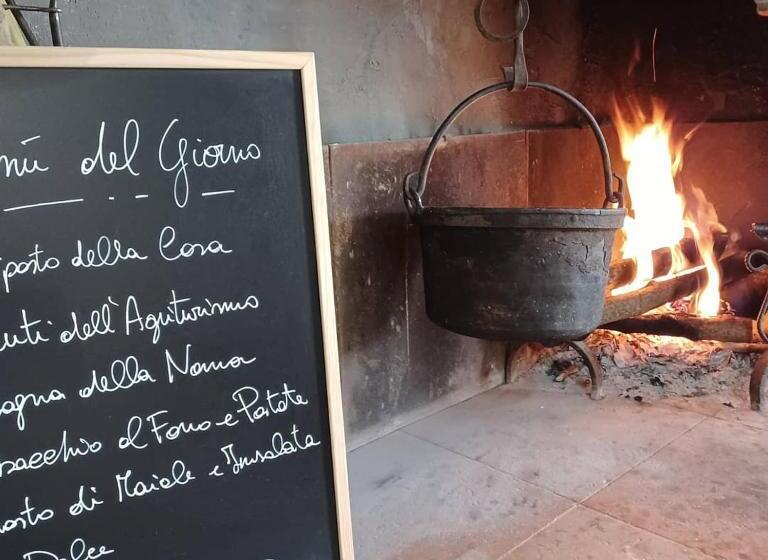 nù del Giorno
iposto della Casa
uti dell'Agriturismo
agna della Nonna
bacchio al Forno e Patate
osto di Maiale e Insalata
Dolce